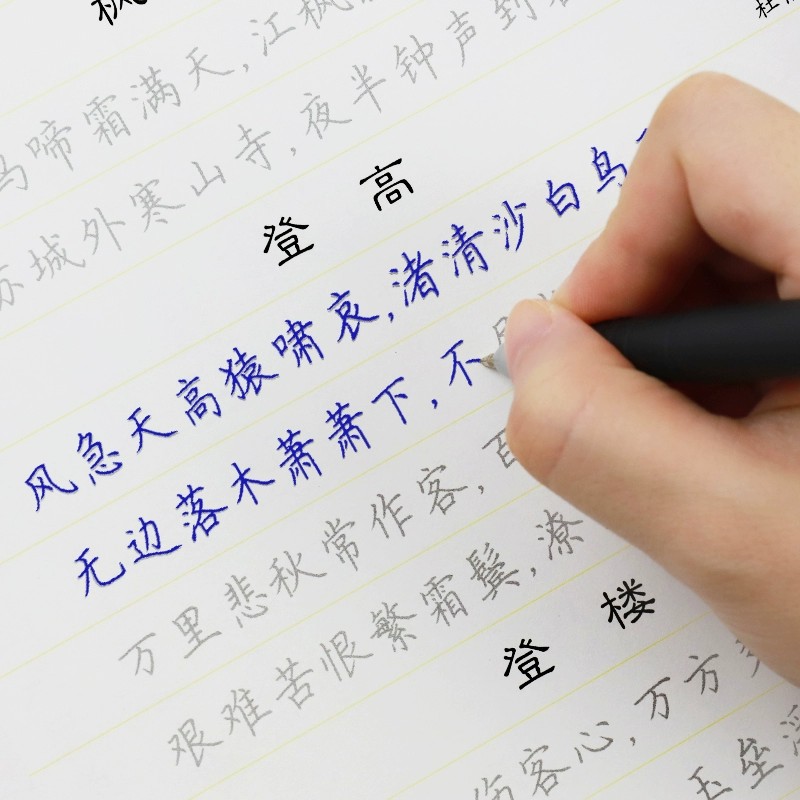 枫
杜
乌啼霜满天,江枫
苏城外寒山寺,夜半钟声到
登高
风急天高猿啸哀,渚清沙白鸟
无边落木萧萧下,不
万里悲秋常作客,百
艰难苦恨繁霜鬓,潦
登楼
伤客心,万方多
玉垒浮